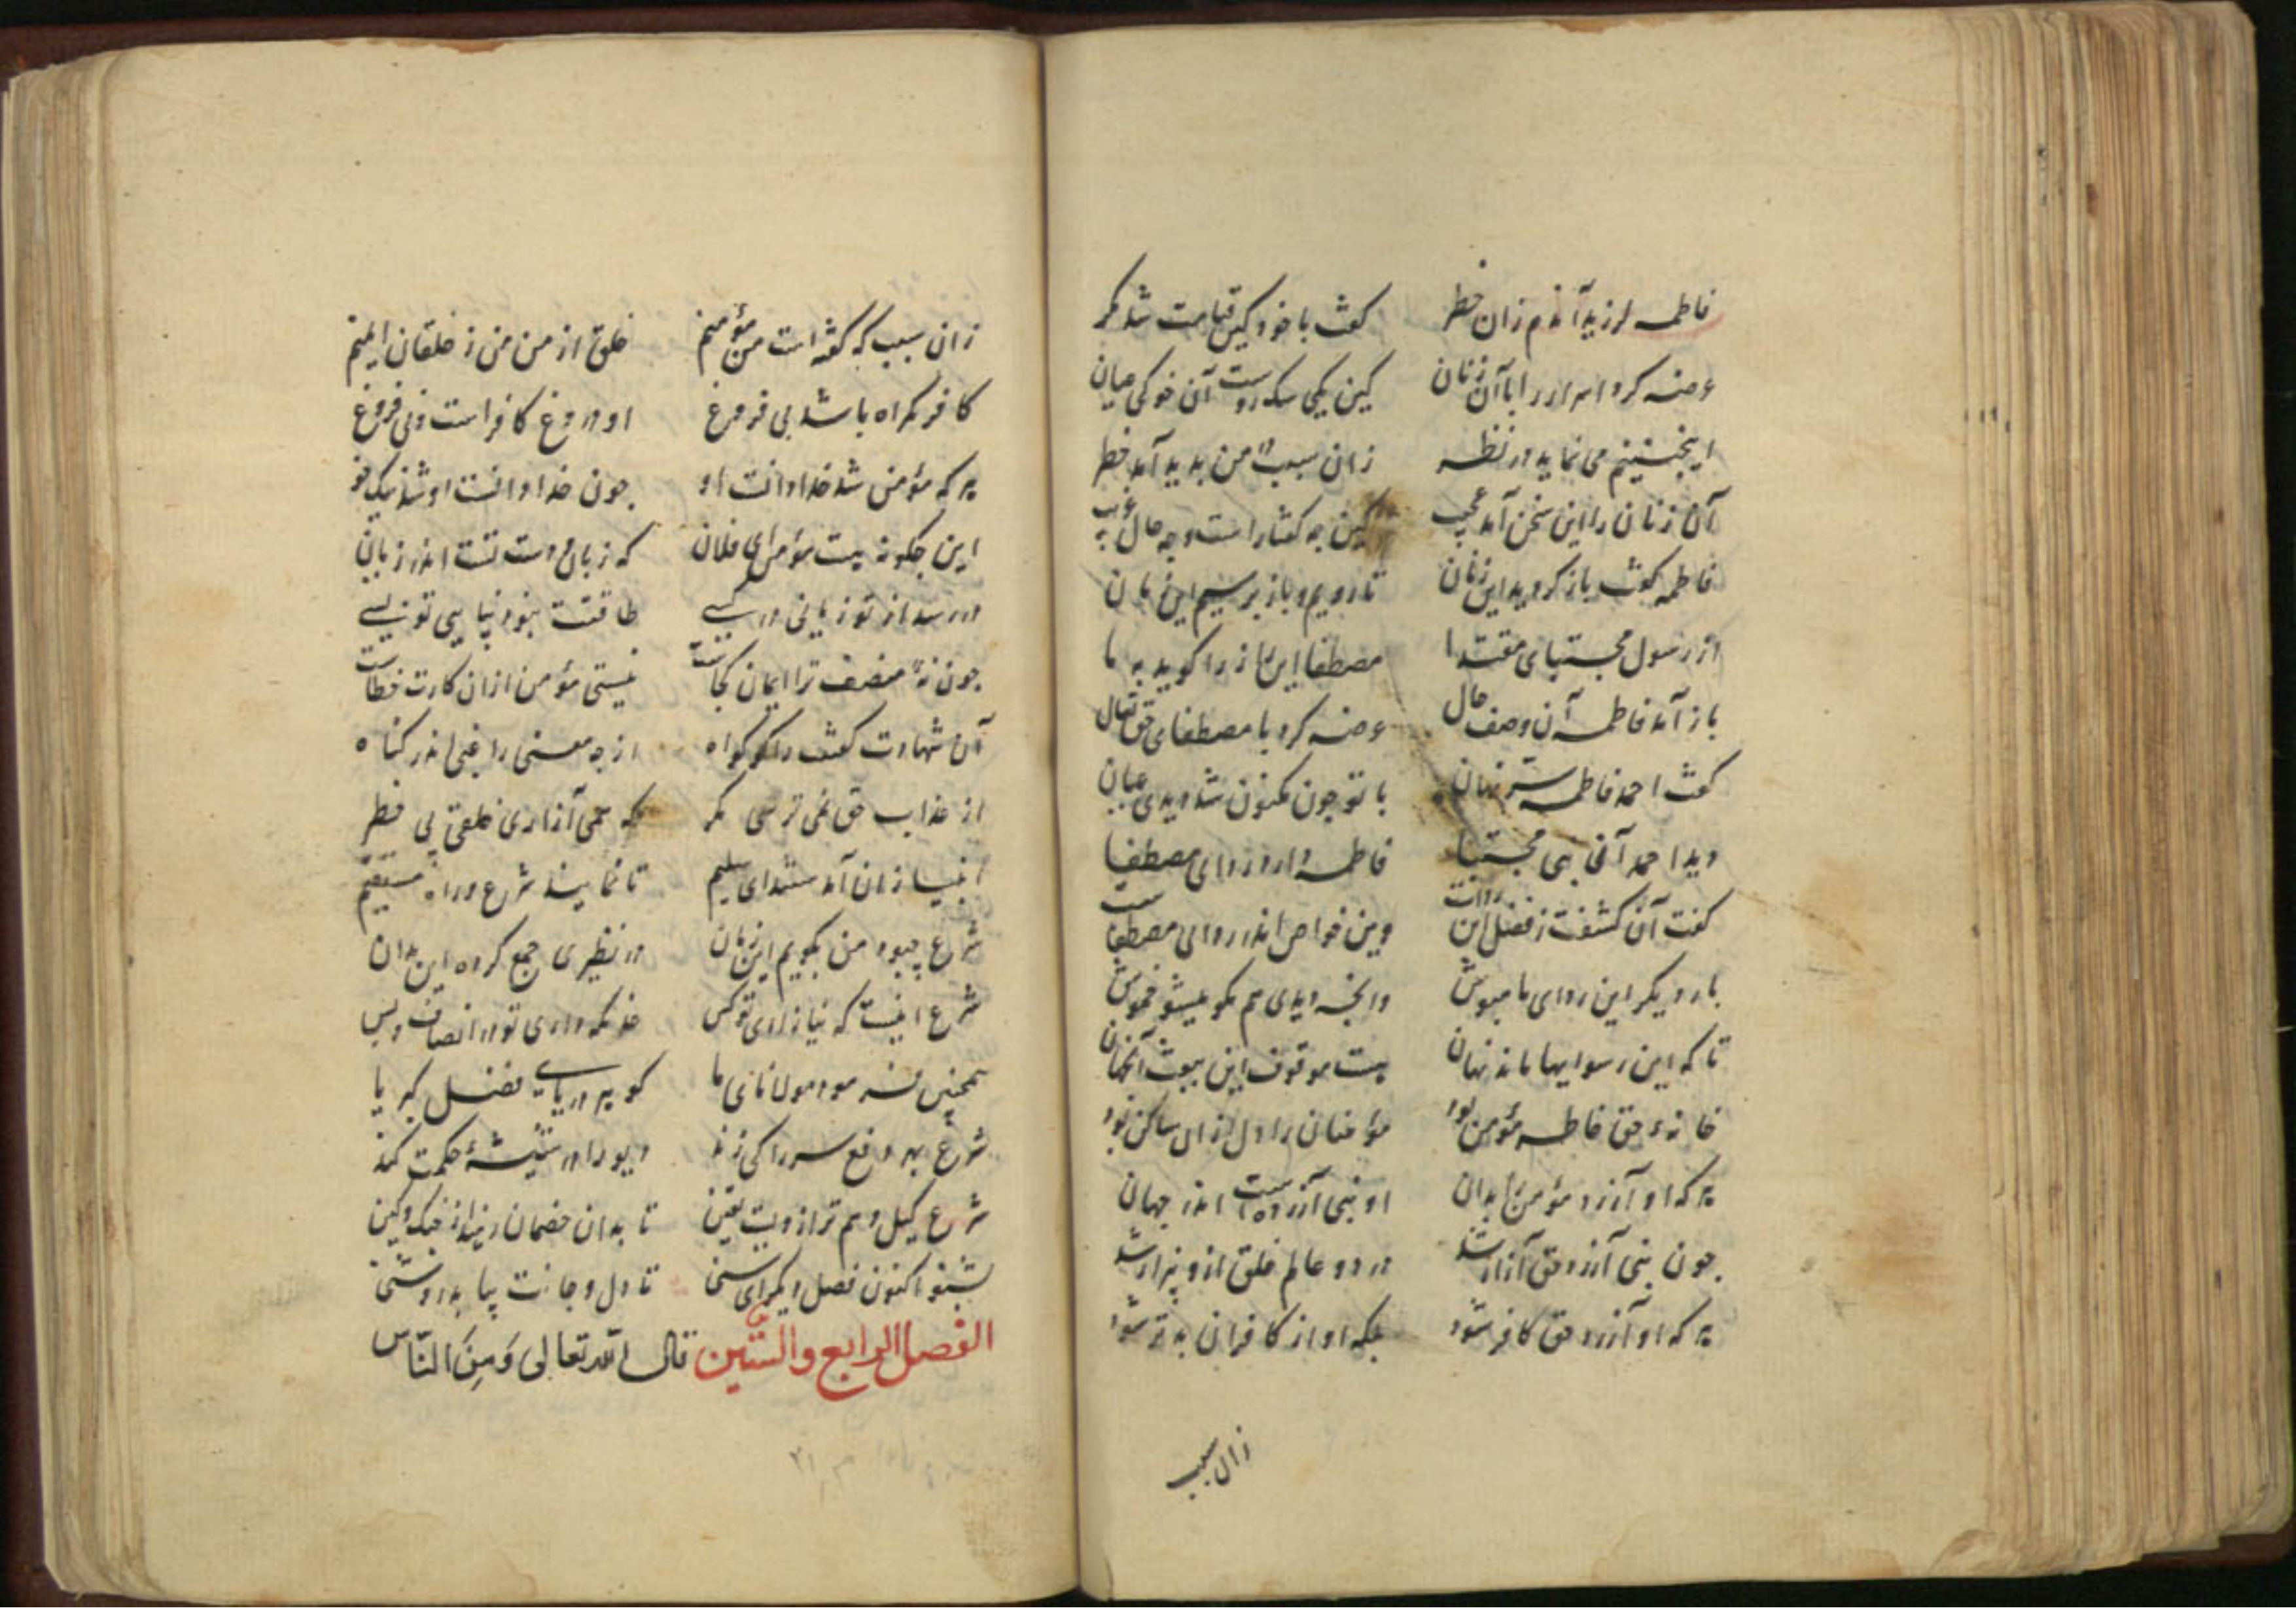 فاطمه لرزید آندم زان خطر کفت با خود کین قیامت شد مکر
عرضه کرد اسرار را با آن زنان کین یکی سک روست آن خوکی میان
اینچنینم می نماید در نظر زان سبب در من بدید آمد خطر
آن زنان را این سخن آمد عجب کین چه کفتار است و چه حال عجب
فاطمه کفت باز کردید این زمان تا رویم و باز برسیم این زمان
از رسول مجتبای مقتدا مصطفا این راز را کوید به ما
باز آمد فاطمه آن وصف حال عرضه کرد با مصطفای حق تعال
کفت احمد فاطمه ستر نهان با تو جون مکنون شد دیدی عیان
دید احمد آن بی مجتبا فاطمه دارد ردای مصطفا
کفت آن کشفت ز فضل این رداست وین خواص اندر ردای مصطفاست
بار دیکر این ردای ما مبوش وانچه دیدی هم مکو میشو خموش
تا که این رسوایها ماند نهان هست موقوف این بیوت آنجهان
خانهٔ حق فاطمه مؤمن بود مؤمنان را دل از آن ساکن بود
هر که او آزرد مؤمن را بدان او نبی آزرده است اندر جهان
جون نبی آزرد حق آزار شد در دو عالم خلق ازو بیزار شد
هر که او آزرد حق کافر شود بلکه او از کافران بدتر شود
زان سبب
زان سبب که کفته است من مؤمنم خلق از من من ز خلقان ایمنم
کافر کمراه باشد بی فروغ او دروغ کافر است و بی فروغ
هر که مؤمن شد خدا دانست او جون خدا دانست او شد نیک خو
این جکونه هست مؤمن ای فلان که زبان و دست تست اندر زیان
در رسد از تو زیانی در کسی طاقتت نبود نیایی تو بسی
جون نهٔ منصف ترا ایمان کجاست نیستی مؤمن ازان کارت خطاست
آن شهادت کفت را کو کواه از چه معنی را غبی اندر کناه
از عذاب حق نمی ترسی مکر که همی آزاری خلقی بی خطر
انبیا زان آمدستند ای سلیم تا نمایند شرع و راه مستقیم
شرع چبود من بکویم این زمان در نظیری جمع کرده این بدان
شرع اینست که نیازاری تو کس خد نکه داری تو در انصاف و بس
همچنین فرمود مولانای ما کو بر دریای فضل کبریا
شرع بهر دفع سر را کی زند دیو را در شیشهٔ حکمت کند
شرع کیل و هم ترازویست یقین تا بدان خصمان رهند از جنک و کین
بشنو اکنون فصل دیکر ای سنی تا دل و جانت بیابد روشنی
الفصل الرابع والستین قال الله تعالی وَمِنَ النّاس